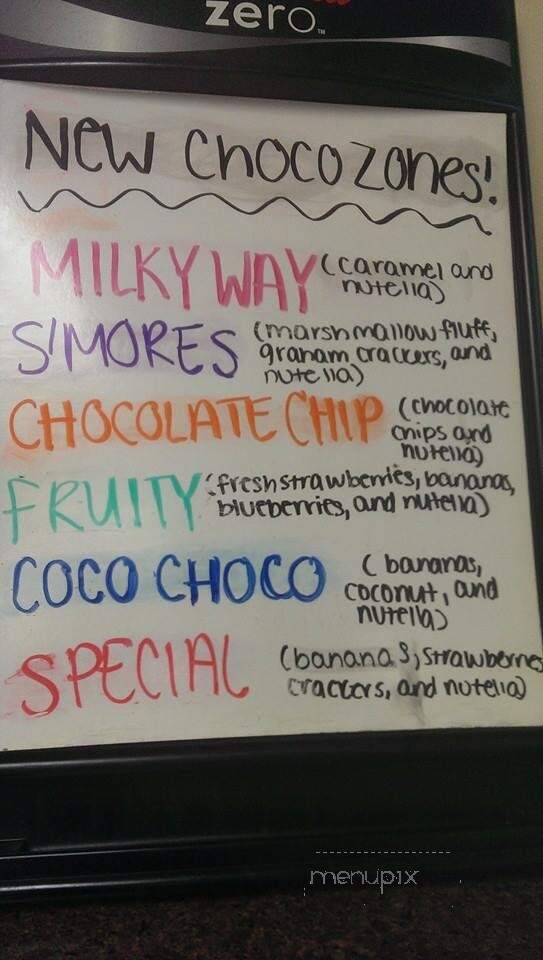 zero™
New Choco Zones!
MILKY WAY (caramel and
nutella)
S'MORES (marshmallow fluff,
graham crackers, and
nutella)
CHOCOLATE CHIP (chocolate
chips and
nutella)
FRUITY (fresh strawberries, bananas,
blueberries, and nutella)
COCO CHOCO (bananas,
coconut, and
nutella)
SPECIAL (bananas, strawberries
crackers, and nutella)
menupix